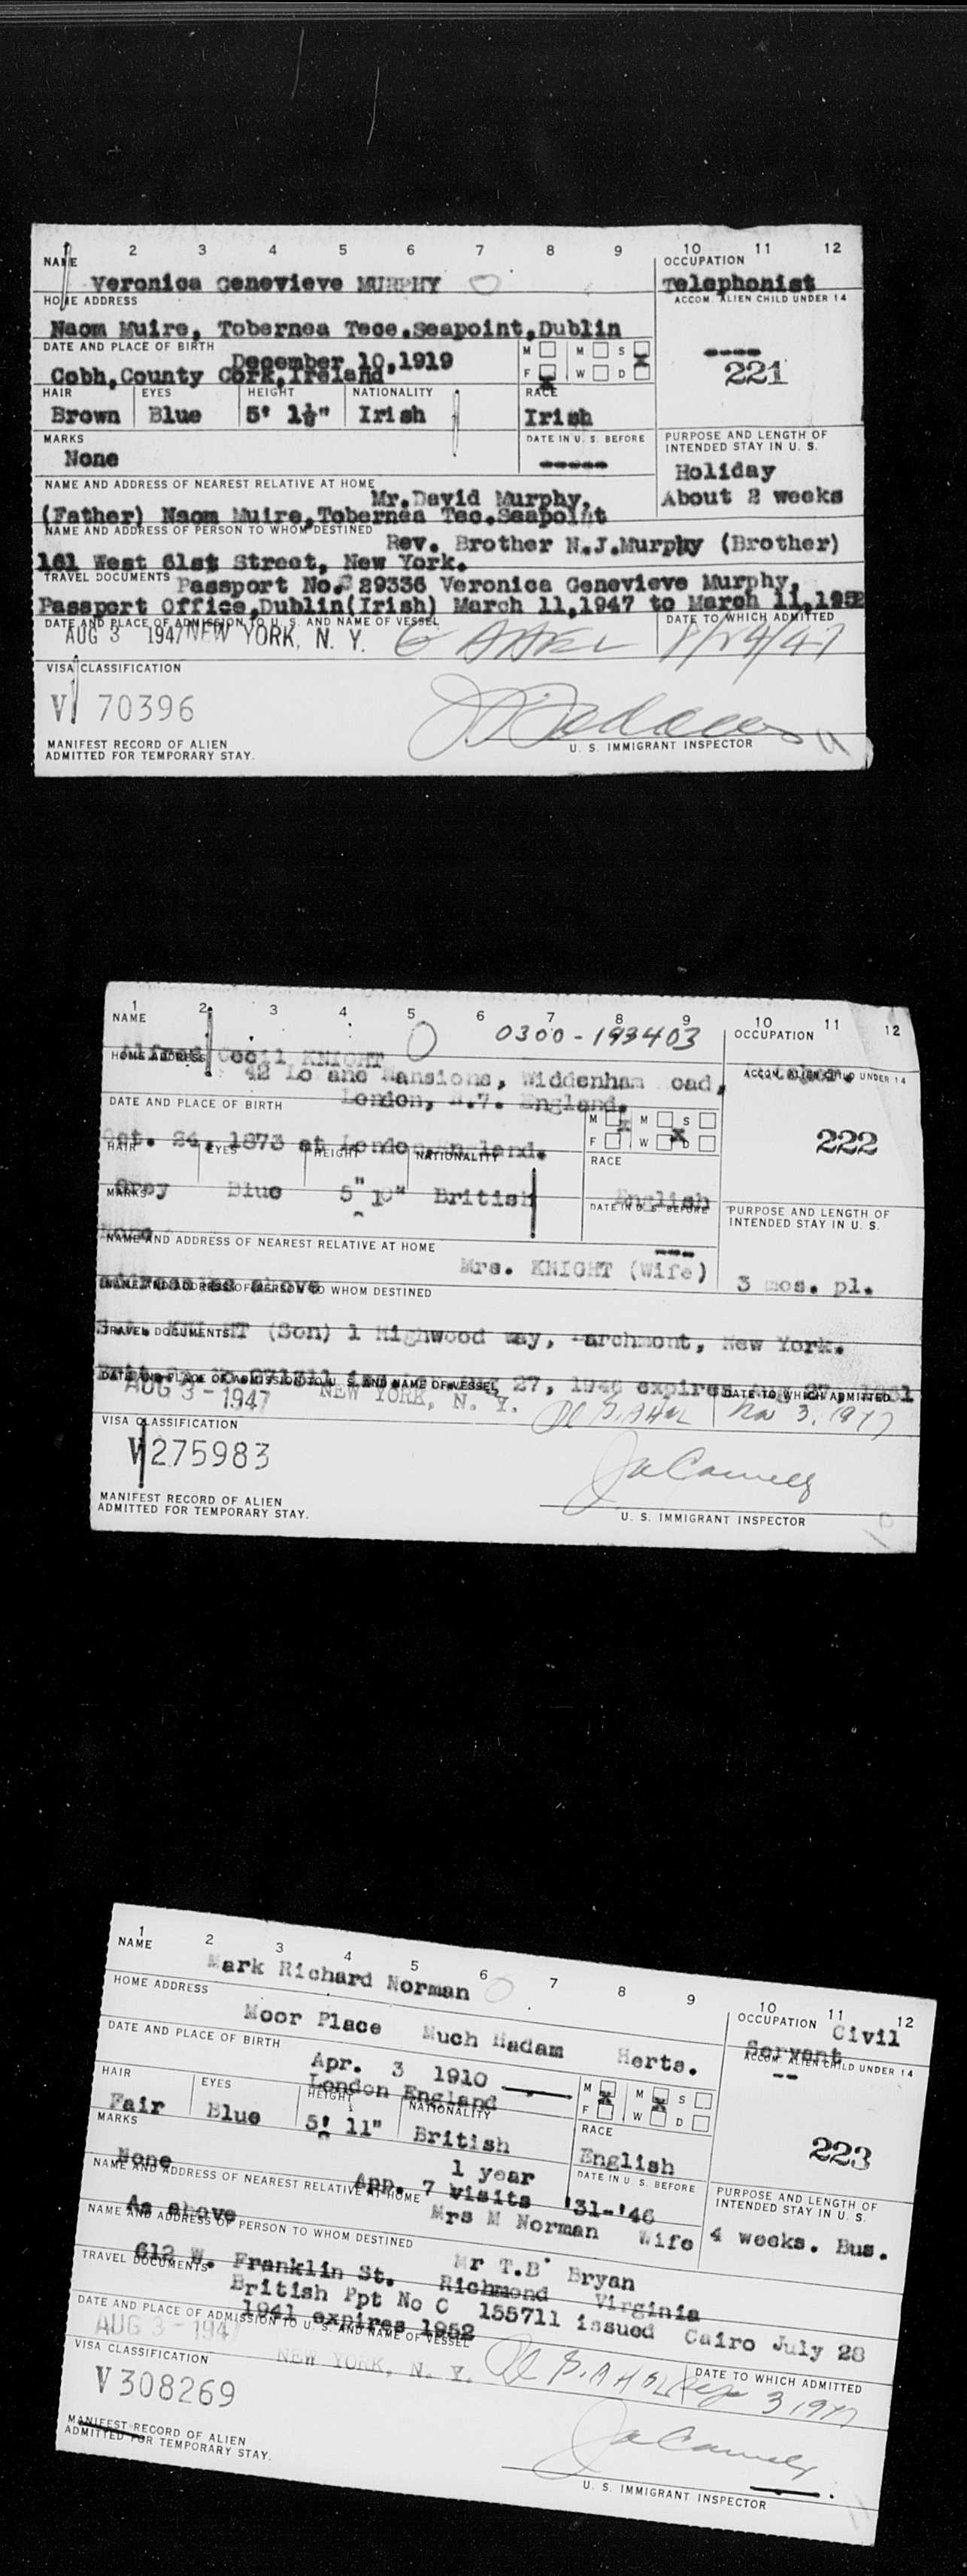 1 2 3 4 5 6 7 8 9 10 11 12
NAME OCCUPATION
Veronica Genevieve MURPHY Telephonist
HOME ADDRESS ACCOM. ALIEN CHILD UNDER 14
Naom Muire, Tobernea Tece.Seapoint,Dublin ----
DATE AND PLACE OF BIRTH M M S
December 10,1919 221
Cobh,County Cork,Ireland F W D
HAIR EYES HEIGHT NATIONALITY RACE
Brown Blue 5' 1½" Irish Irish
MARKS DATE IN U. S. BEFORE PURPOSE AND LENGTH OF
INTENDED STAY IN U. S.
None ----- Holiday
NAME AND ADDRESS OF NEAREST RELATIVE AT HOME About 2 weeks
Mr.David Murphy,
(Father) Naom Muire,Tobernea Tec.Seapoint
NAME AND ADDRESS OF PERSON TO WHOM DESTINED
Rev. Brother N.J.Murphy (Brother)
161 West 61st Street, New York.
TRAVEL DOCUMENTS Passport No. 29336 Veronica Genevieve Murphy,
Passport Office,Dublin(Irish) March 11,1947 to March 11,1952
DATE AND PLACE OF ADMISSION TO U. S. AND NAME OF VESSEL DATE TO WHICH ADMITTED
AUG 3 1947 NEW YORK, N. Y. 8/24/47
VISA CLASSIFICATION
V 70396
MANIFEST RECORD OF ALIEN U. S. IMMIGRANT INSPECTOR
ADMITTED FOR TEMPORARY STAY.
1 2 3 4 5 6 7 8 9 10 11 12
NAME 0300-193403 OCCUPATION
Alfred Cecil KNIGHT
HOME ADDRESS ACCOM. ALIEN CHILD UNDER 14
42 Mansions, Widdenham Road,
DATE AND PLACE OF BIRTH London, N.7. England.
M M S
222
Oct. 24, 1873 at London England. F W D
HAIR EYES HEIGHT NATIONALITY RACE
Grey Blue 5" 10" British English
MARKS DATE IN U. S. BEFORE PURPOSE AND LENGTH OF
INTENDED STAY IN U. S.
None ---
NAME AND ADDRESS OF NEAREST RELATIVE AT HOME
Mrs. KNIGHT (Wife) 3 mos. pl.
above
NAME AND ADDRESS OF PERSON TO WHOM DESTINED
KNIGHT (Son) 1 Highwood Way, Larchmont, New York.
TRAVEL DOCUMENTS
27, 1946 expires
DATE AND PLACE OF ADMISSION TO U. S. AND NAME OF VESSEL DATE TO WHICH ADMITTED
AUG 3-1947 NEW YORK, N. Y. Nov 3, 1947
VISA CLASSIFICATION
V 275983
MANIFEST RECORD OF ALIEN
ADMITTED FOR TEMPORARY STAY. U. S. IMMIGRANT INSPECTOR
1 2 3 4 5 6 7 8 9 10 11 12
NAME OCCUPATION Civil
Mark Richard Norman Servant
HOME ADDRESS ACCOM. ALIEN CHILD UNDER 14
Moor Place Much Hadam Herts. --
DATE AND PLACE OF BIRTH
Apr. 3 1910 M M S
London England F W D
223
HAIR EYES HEIGHT NATIONALITY RACE
Fair Blue 5' 11" British English
MARKS 1 year DATE IN U. S. BEFORE PURPOSE AND LENGTH OF
INTENDED STAY IN U. S.
None App. 7 visits '31-'46
NAME AND ADDRESS OF NEAREST RELATIVE AT HOME
As above Mrs M Norman Wife 4 weeks. Bus.
NAME AND ADDRESS OF PERSON TO WHOM DESTINED
Mr T.B. Bryan
612 W. Franklin St. Richmond Virginia
TRAVEL DOCUMENTS
British Ppt No C 155711 issued Cairo July 28
1941 expires 1952
DATE AND PLACE OF ADMISSION TO U. S. AND NAME OF VESSEL DATE TO WHICH ADMITTED
AUG 3-194 NEW YORK, N. Y. 3 1947
VISA CLASSIFICATION
V 308269
MANIFEST RECORD OF ALIEN
ADMITTED FOR TEMPORARY STAY. U. S. IMMIGRANT INSPECTOR